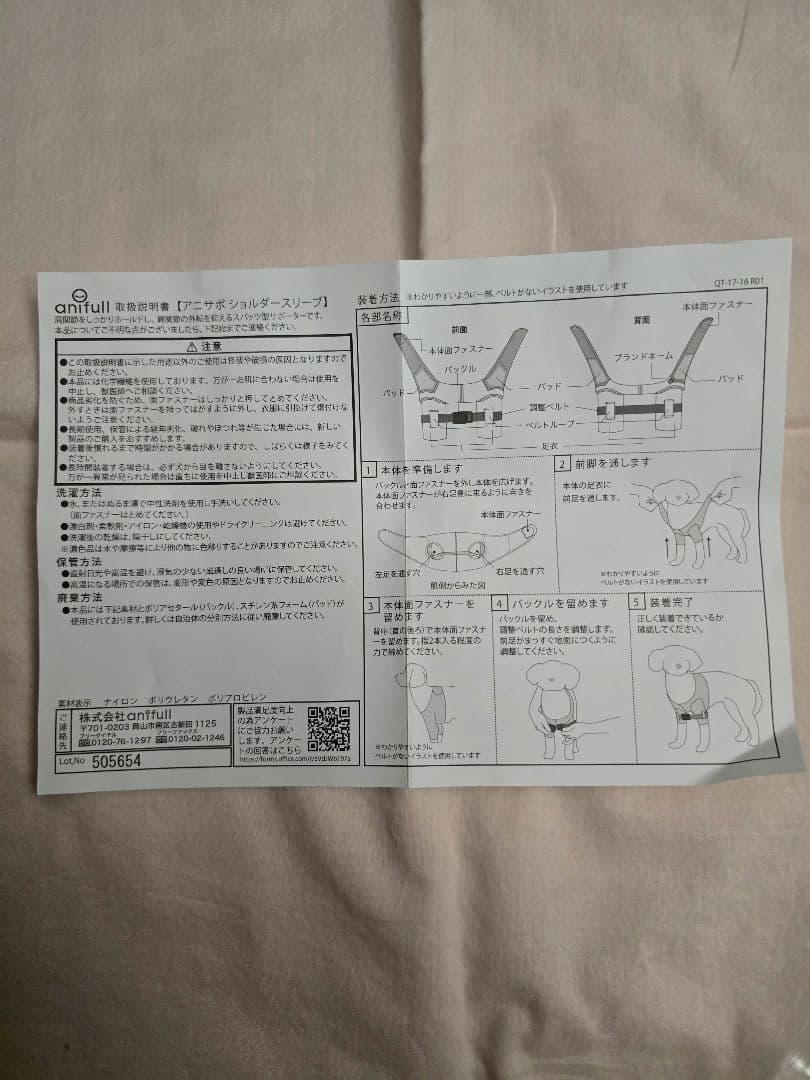 anifull 取扱説明書【アニサポ ショルダースリーブ】
肩関節をしっかりホールドし、肩関節の外転を抑えるスパッツ型サポーターです。
本品についてご不明な点がございましたら、下記宛までご連絡ください。
⚠ 注意
●この取扱説明書に示した用途以外のご使用は怪我や破損の原因となりますので
お止めください。
●本品には化学繊維を使用しております。万が一お肌に合わない場合は使用を
中止し、獣医師へご相談ください。
●商品劣化を防ぐため、面ファスナーはしっかりと押してとめてください。
外すときは面ファスナーを持ってはがすように外し、衣服に引掛けて傷付けな
いようご注意ください。
●長期使用、保管による経年劣化、破れやほつれ等が生じた場合には、新しい
製品のご購入をおすすめします。
●装着後慣れるまで時間がかかる場合がありますので、しばらくは様子をみてく
ださい。
●長時間装着する場合は、必ず犬から目を離さないようにしてください。
万が一異常が見られた場合は直ちに使用を中止し獣医師にご相談ください。
洗濯方法
●水、またはぬるま湯で中性洗剤を使用し手洗いしてください。
(面ファスナーはとめてください。)
●漂白剤・柔軟剤・アイロン・乾燥機の使用やドライクリーニングは避けてください。
●洗濯後の乾燥は、陰干しにしてください。
※濃色品は水や摩擦等により他の物に色移りすることがありますのでご注意ください。
保管方法
●直射日光や高温を避け、湿気の少ない風通しの良い場所に保管してください。
●高温になる場所での保管は、変形や変色の原因となりますのでお止めください。
廃棄方法
●本品には下記素材とポリアセタール(バックル)、スチレン系フォーム(パッド)が
使用されております。詳しくは自治体の分別方法に従い廃棄してください。
素材表示 ナイロン ポリウレタン ポリプロピレン
ご連絡先
株式会社anifull
〒701-0203 岡山市南区古新田1125
フリーダイヤル フリーファックス
0120-76-1297 0120-02-1246
Lot,No 505654
製品満足度向上
の為アンケート
にご協力お願い
します。アンケー
トの回答はこちら
装着方法 ※わかりやすいように一部、ベルトがないイラストを使用しています
QT-17-16 R01
各部名称
前面
本体面ファスナー
バックル
パッド
パッド
調整ベルト
ベルトループ
足衣
背面
本体面ファスナー
ブランドネーム
パッド
1 本体を準備します
バックルと面ファスナーを外し本体を広げます。
本体面ファスナーが右足側に来るように向きを
合わせます。
本体面ファスナー
左足を通す穴
右足を通す穴
肌側からみた図
2 前脚を通します
本体の足衣に
前足を通します。
※わかりやすいように
ベルトがないイラストを使用しています
3 本体面ファスナーを
留めます
背中(首の後ろ)で本体面ファスナ
ーを留めます。指2本入る程度の
力で締めてください。
※わかりやすいように
ベルトがないイラストを使用しています
4 バックルを留めます
バックルを留め、
調整ベルトの長さを調整します。
前足がまっすぐ地面につくように
調整してください。
5 装着完了
正しく装着できているか
確認してください。